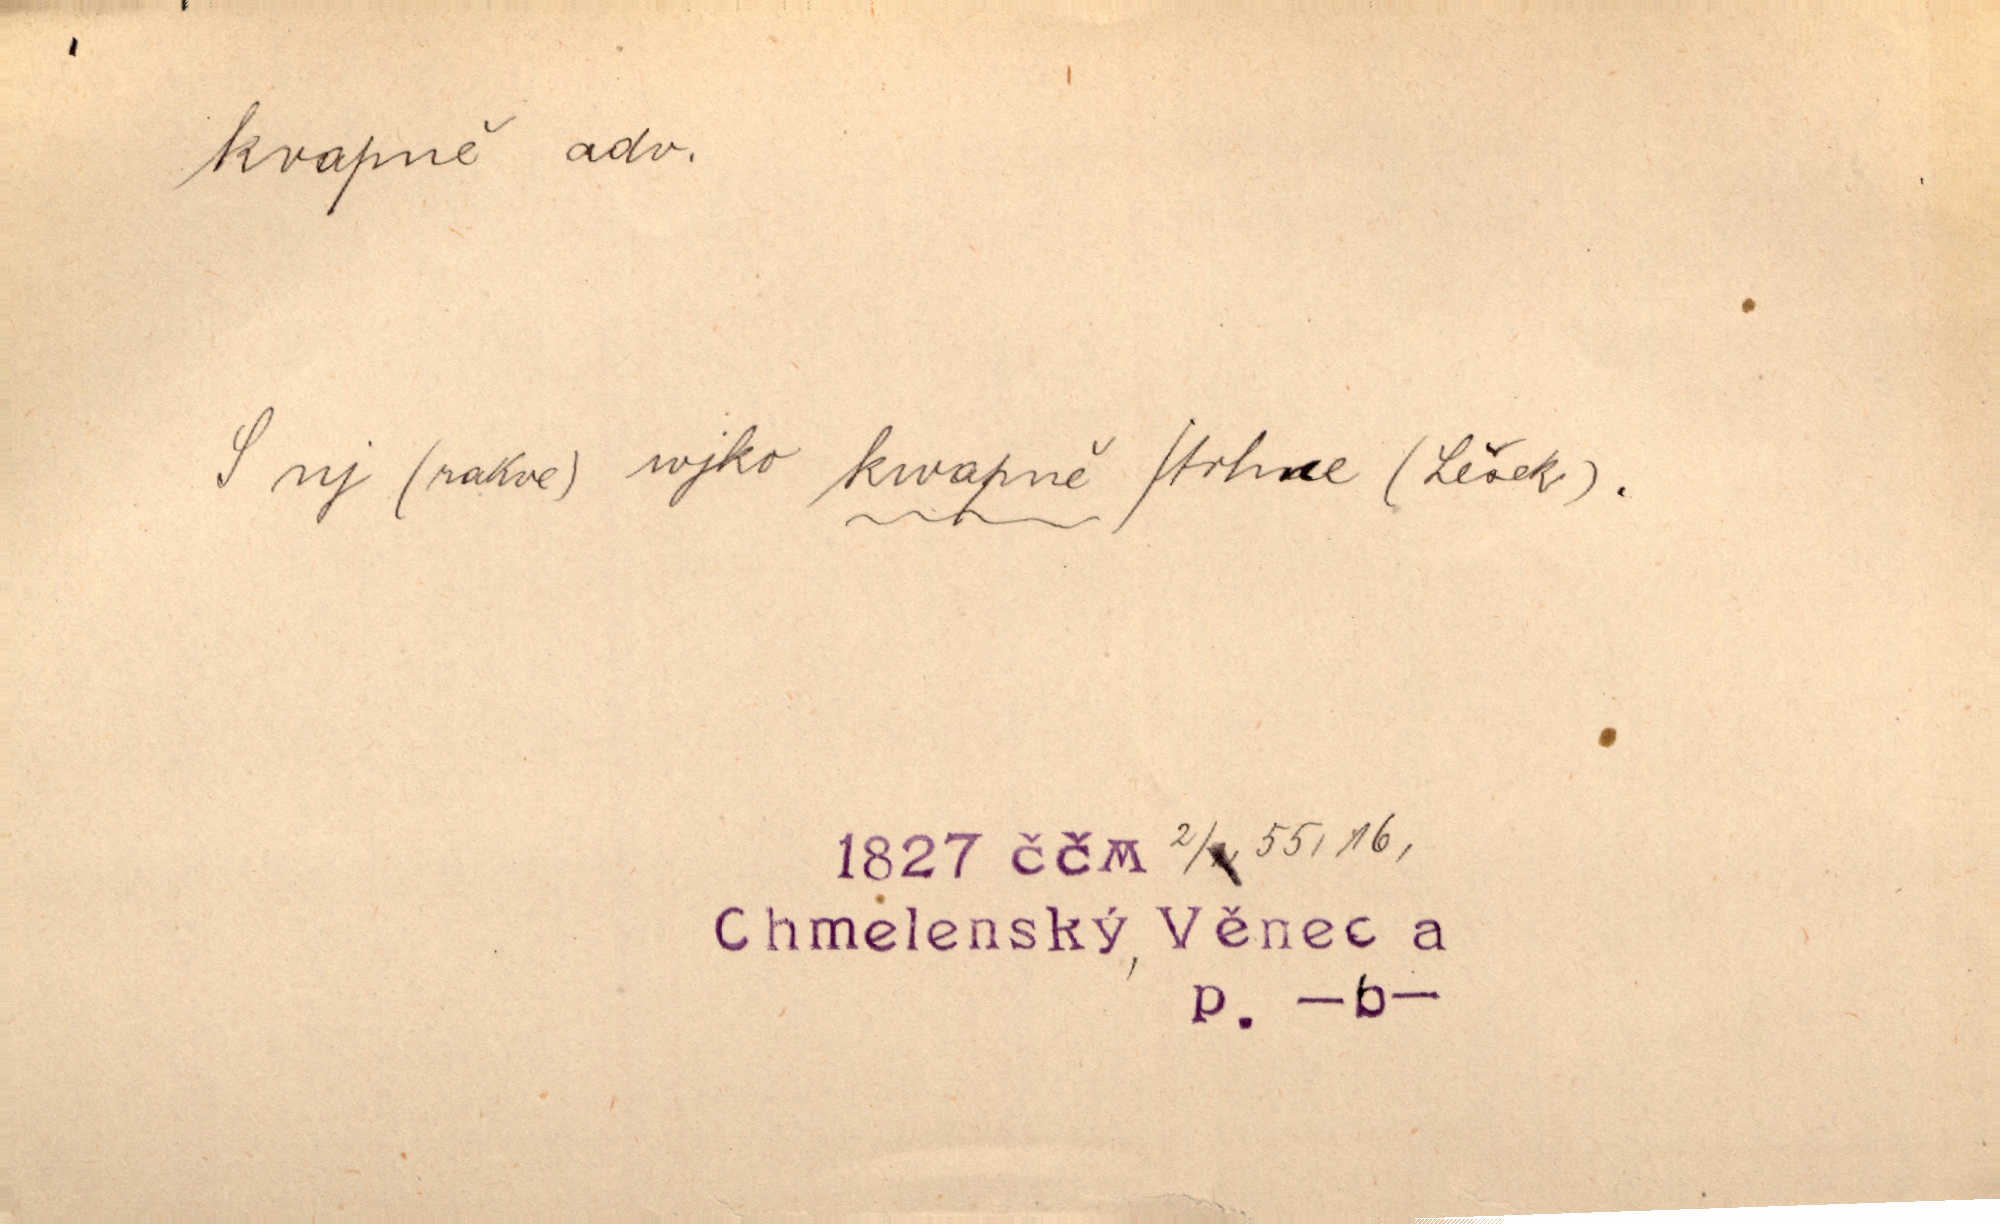 kvapně adv.
S nj (rakve) wjko kwapně ſtrhne (Lešek).
1827 ČČM 2/ 55, 16,
Chmelenský, Věnec a
p. —b—